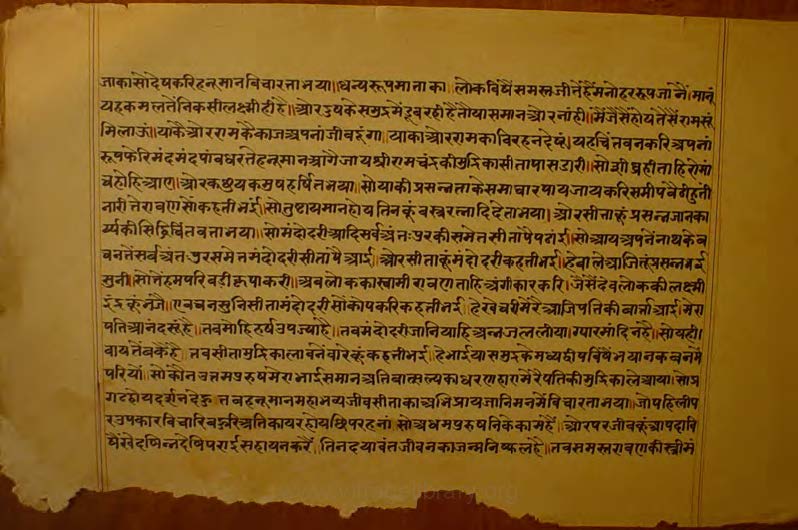 जाकासोंदेषकरिहनूमानबिचारताभया॥धन्यरूपमाताका॥लोकबिषैंसमस्तजीनेंहैंमनोहररूपजानें।मानूं
यहकमलतेंनिकसीलक्ष्मीहीहै॥औरदुषकेसमुद्रमेंडूबरहीहैतौयासमानऔरनांही॥मैंजैसैंहोयतैसैंरामसूं
मिलाऊं॥याकैऔररामकैकाजअपनांजीवद्दूंगा॥याकाऔररामकाविरहनदेषूं।यहचिंतवनकरिअपनां
रूपफेरिमंदमंदपांवधरतेहनूमानआंगैजायश्रीरामचंद्रकीमुद्रिकासीतापासडारी॥सोशीघ्रहीताहिरोमां
चहोहिआए॥औरकछुयकमुषहर्षितभया॥सोयाकीप्रसन्नताकेसमाचारपायजायकरिसमीपबैठीहुती
नारीतेरावणसोंकहतीभई॥सोतुष्टायमानहोयतिनकूंबस्त्ररत्नादिदेताभया॥औरसीताकूंप्रसन्नजानका
र्य्यकीसिद्धिचिंतवताभया॥सोमंदोदरीआदिसर्बअंतःपुरकीसमेतसीतापैंपठाई॥सोआयअपनेंनाथकेब
चनतेंसर्वअंतःपुरसमेतमंदोदरीसीतापैआई॥औरसीताकूंमंदोदरीकहतीभई॥हेबालेआजितूंप्रसन्नभई
सुनी॥सोतेंहमपरिबडीकृपाकरी॥अबलोककास्वामीरावणताहिअंगीकारकरि॥जैसैंदेवलोककीलक्ष्मी
इंद्रकूंभजै॥एबचनसुनिसीतामंदोदरीसोंकोपकरिकहतीभई॥हेखेचरीमेरेआजिपतिकीबार्त्ताआई॥मेरा
पतिआनंदसूंहै॥तबमोहिहर्यउपज्याहै॥तबमंदोदरीजानियाहिअन्नजललीया।ग्यारमांदिनहै॥सोयही।
बायतेंबकैहै॥तबसीतामुद्रिकालावनेंवारेकूंकहतीभई॥हेभाईयासमुद्रकेमध्यद्वीपबिषैंभयानकबनमें
परियों॥सोकोनउत्तमपुरुषमेराभाईसमानअतिबात्सल्यकाधरणहारामेरैपतिकीमुद्रिकालेआया॥सोप्र
गटहोयदर्शनदेहु॥तबहनूमानमहाभव्यजीवसीताकाअभिप्रायजानिमनमेंबिचारताभया॥जोपहिलीप
रउपकारबिचारिबहुरिअतिकायरहोयछिपरहनां॥सोअधमपुरुषनिकेकामहैं॥औरपरजीवकूंआपदाबि
षैंखेदषिन्नदेषिपराईसहायनकरैं॥तिनदयावंतजीवनकाजन्मनिष्फलहै॥तबसमस्तरावणकीस्त्रीमं